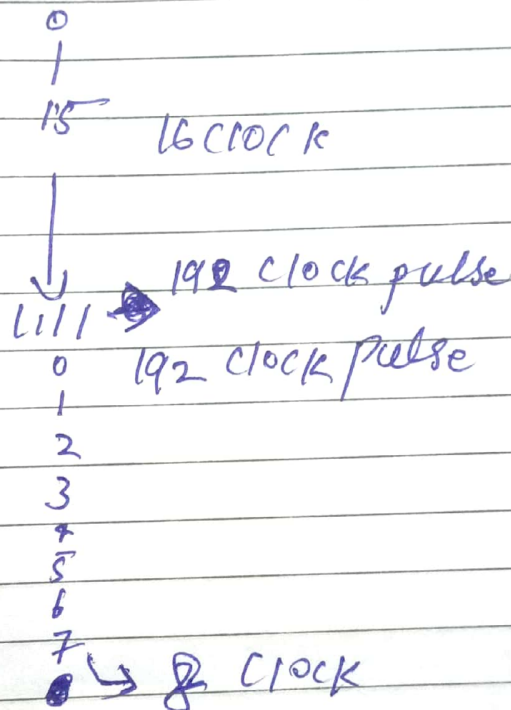 0
1
15
16 clock
1111 → 192 clock pulse
0 192 clock pulse
1
2
3
4
5
6
7
↳ 8 clock